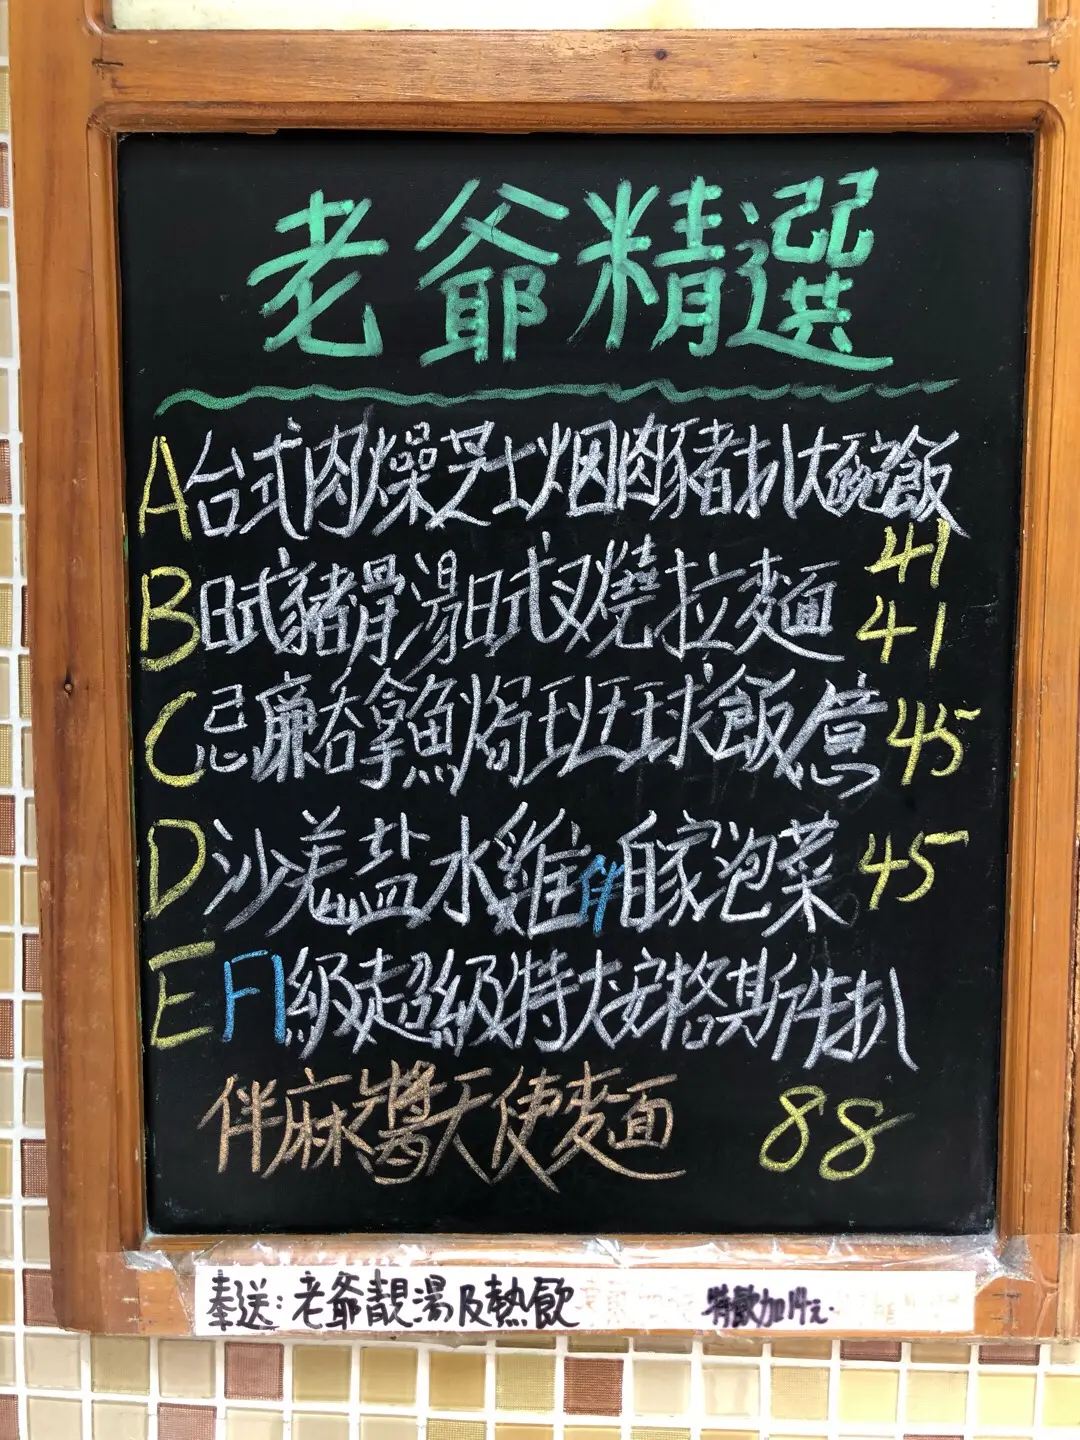 老爺精選
A 台式肉燥芝士烟肉豬扒大碗飯
41
B 日式豬骨湯日式叉燒拉麵 41
C 忌廉吞拿魚焗班球飯意 45
D 沙羗盐水雞伴自家泡菜 45
E F1級超級特大安格斯牛扒
伴麻醬天使麵 88
奉送:老爺靚湯及熱飲
加14元.